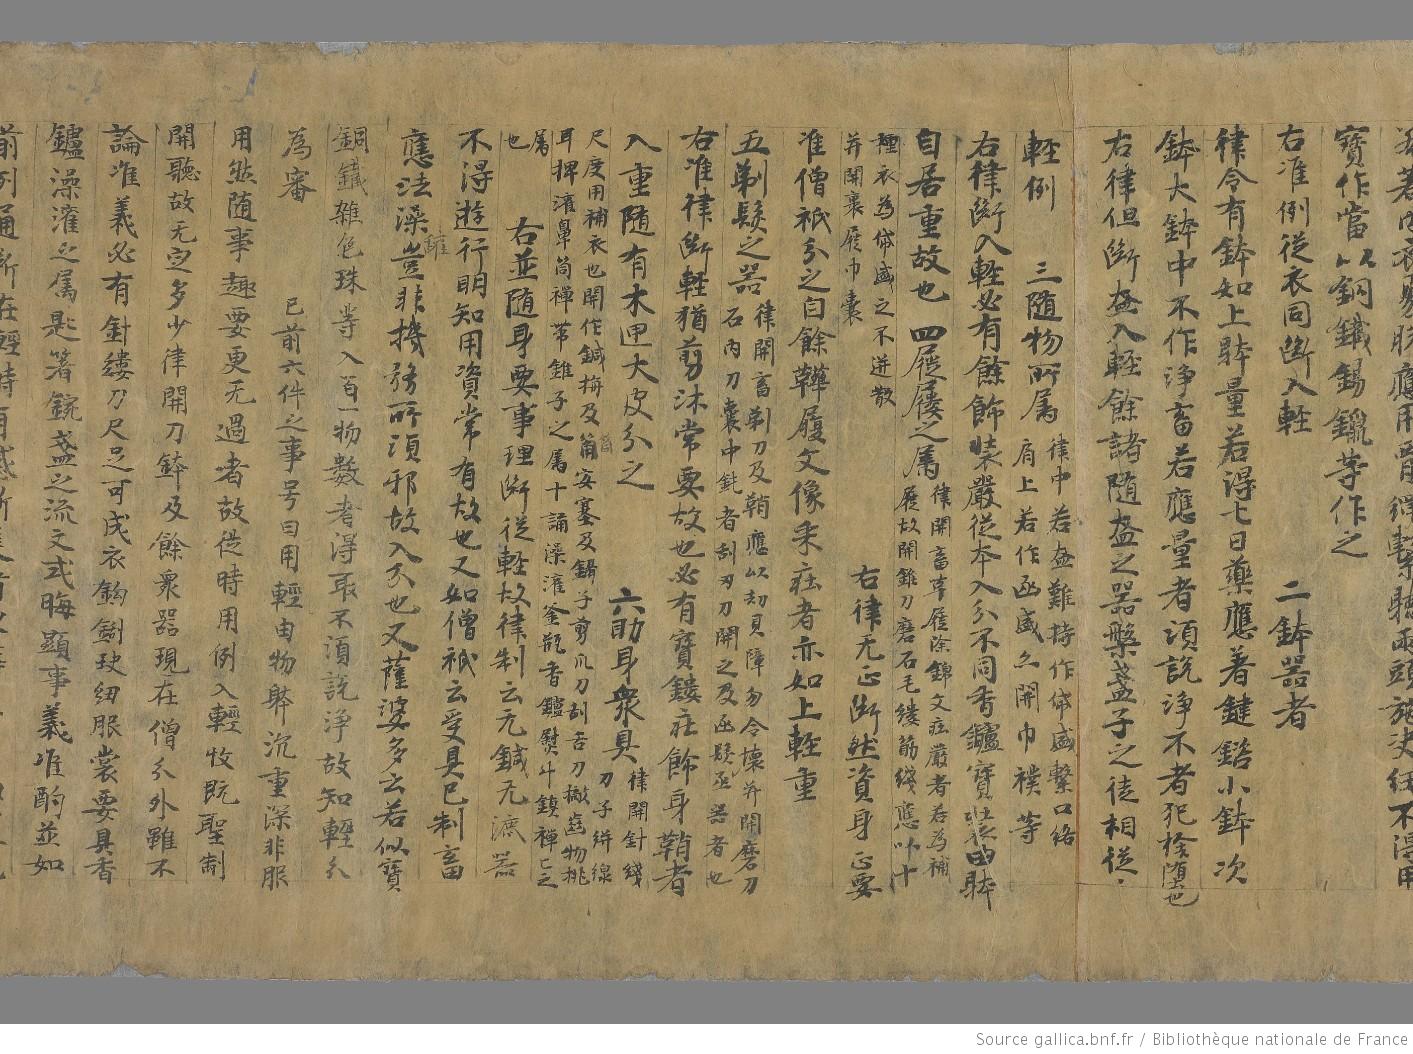 寶作當以銅鐵錫鑞等作之
右准例從衣同斷入輕　二鉢器者
律令有鉢如上躰量若得七日藥應著鍵鎔小鉢次
鉢大鉢中不作淨畜若應量者須說淨不者犯捨墮也
右律但斷盔入輕餘諸隨盔之器槃盞子之徒相從
輕例　三隨物所属
律中若盔難持作帒盛繫口絡
肩上若作凾盛亦開巾襆等
右律斷入輕必有餘飾裝嚴從本入分不同香鑪寶裝由躰
自居重故也　四屣屨之属
律開畜革屣除錦文莊嚴者若為補
屣故開錐刀磨石毛縷筋綫應以十
種衣為帒盛之不迸散
并開裹屣巾囊
右律无正斷然資身正要
准僧祇分之自餘鞾履文像釆莊者亦如上輕重
五剃髮之器
律開畜剃刀及鞘應以刧貝障勿令壞并開磨刀
石內刀囊中鈍者刮刃刀開之及承髮承器者也
右准律斷輕猶剪沐常要故也必有寶鏤莊飾身鞘者
入重隨有木甲大皮分之　六助身衆具
律開針綫
刀子絣線
尺度用補衣也開作鍼𣑊及筩安塞及鑷子剪爪刀刮舌刀摘齒物挑
耳捭灌鼻筒禪帶錐子之属十誦澡灌釜瓶香鑪熨斗鎮禪毛之
属
也
右並隨身要事理斷從輕故律制云无鍼无漉器
不得遊行明知用資常有故也又如僧祇云受具已制畜
應法澡罐豈非機務所須邪故入分也又薩婆多云若似寶
銅鐵雜色珠等入百一物數者得取不須說淨故知輕分
為審　已前六件之事号曰用輕由物躰沉重深非服
用然隨事趣要更无過者故從時用例入輕收既聖制
開聽故无定多少律開刀鉢及餘衆器現在僧分外雖不
論准義必有針縷刀尺足可成衣鈎鍘玦紐服裳要具香
鑪澡灌之属匙箸鋺盞之流文或晦顯事義准酌並如